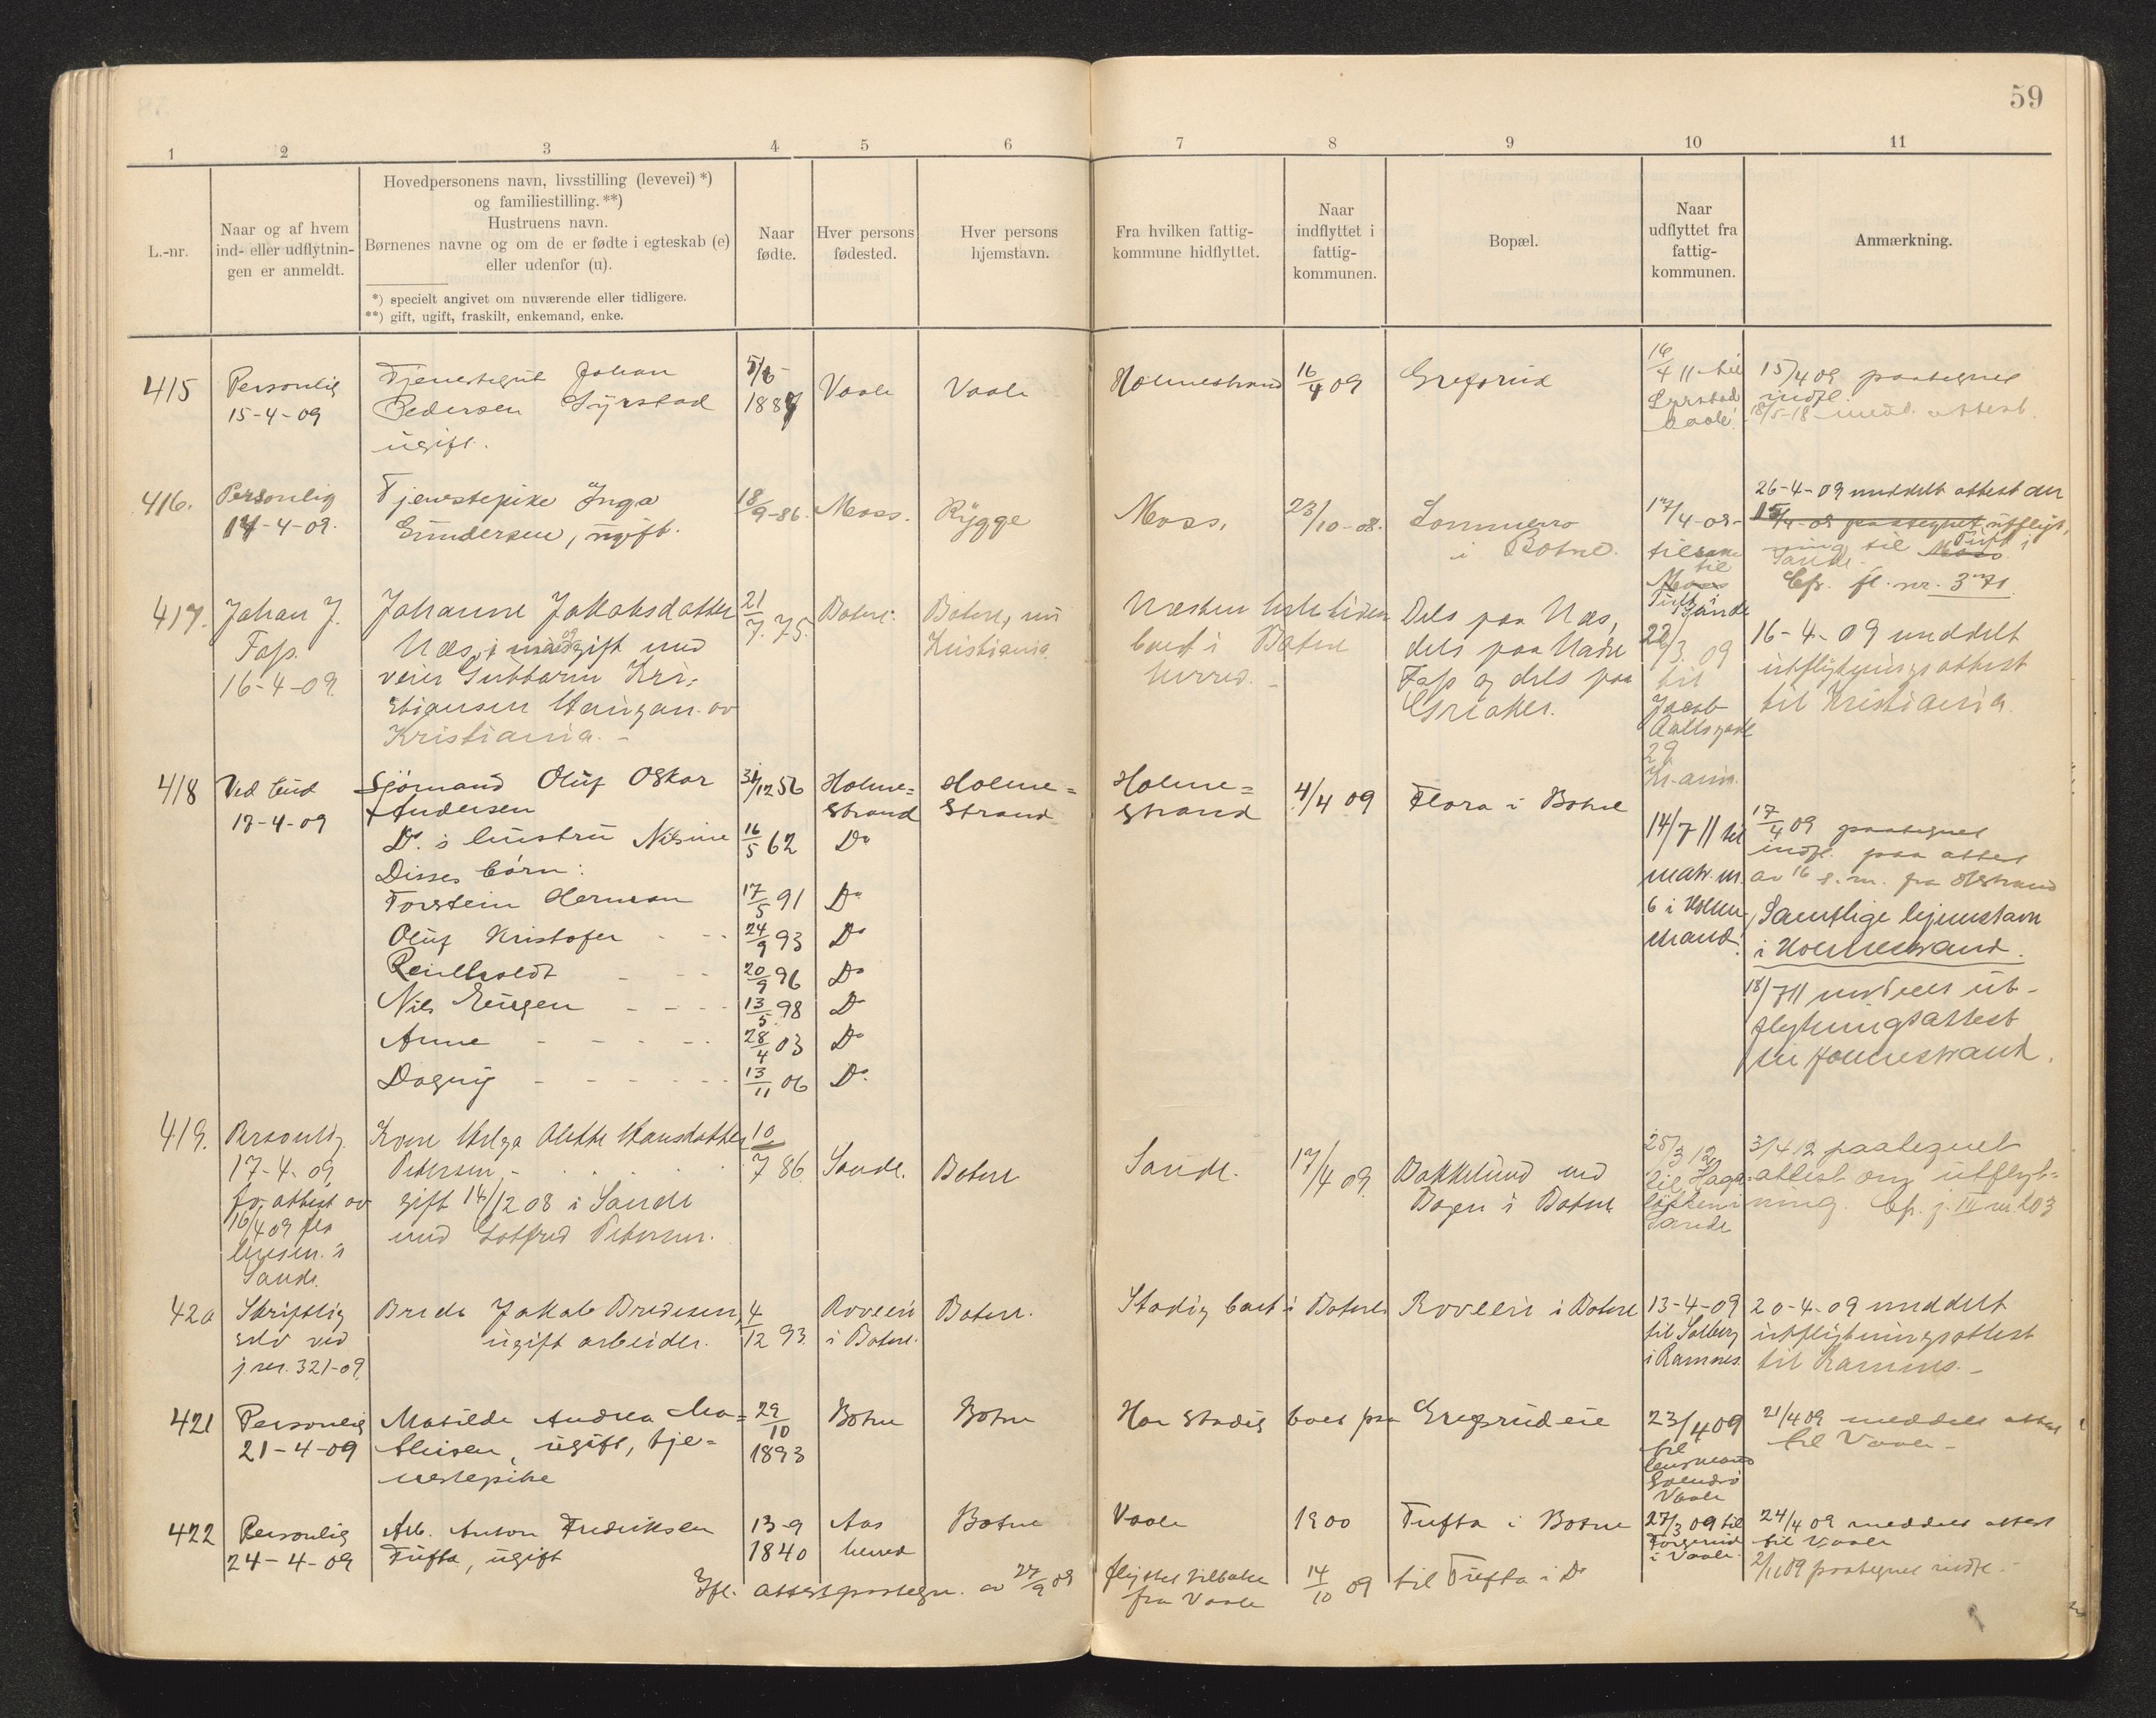 59
1 2 3 4 5 6 7 8 9 10 11
L.-nr.
Naar og af hvem
ind- eller udflytnin-
gen er anmeldt.
Hovedpersonens navn, livsstilling (levevei) *)
og familiestilling. **)
Hustruens navn.
Børnenes navne og om de er fødte i egteskab (e)
eller udenfor (u).
*) specielt angivet om nuværende eller tidligere.
**) gift, ugift, fraskilt, enkemand, enke.
Naar
fødte.
Hver persons
fødested.
Hver persons
hjemstavn.
Fra hvilken fattig-
kommune hidflyttet.
Naar
indflyttet i
fattig-
kommunen.
Bopæl.
Naar
udflyttet fra
fattig-
kommunen.
Anmærkning.
415
Personlig
15-4-09
Tjenestegut Johan
Pedersen
ugift.
Vaale
Vaale
Holmestrand
16/4 09
16/4 11 til
Vaale
15/4 09 paategnet
indfl.
18/5-18 medd. attest.
416.
Personlig
17-4-09.
Tjenestepike Inga
Gundersen, ugift.
18/9-86.
Moss.
Rygge
Moss,
23/10-08.
i Botne.
17/4-09-
til
Moss
Tuft i
Sande
26-4-09 meddelt attest
15/4-09 paategnet utflyt,
ning til Moss Tuft i
Sande.
Cfr. fl. nr. 371
417.
Johan J.
Fass.
16-4-09.
Johanne Jakobsdatter
Næs, gift med
Kri-
stiansen av
Kristiania. -
21/7. 75.
Botne.
Botne, nu
Kristiania
Næsten hele tiden
boet i Botne
herred. -
Dels paa Næs,
dels paa Nadre
Fass og dels paa
Greaker.
22/3. 09
til
Jacob
Aallsgade
29
Kr.ania.
16-4-09 meddelt
utflytningsattest
til Kristiania.
418
Ved bud
17-4-09
Sjømand Oluf Oskar
Andersen
Do. s hustru Nilsine
Disses børn:
Torstein Herman
Oluf Kristofer - -
Reinholdt - - -
Nils Eugen - - - -
Anne - - - - -
Dagny - - - - - -
31/12 56
16/5 62
17/5 91
24/9 93
20/9 96
13/5 98
28/4 03
13/11 06
Holme=
strand
Do
Do
Do
Do
Do
Do
Do
Holme=
strand
Holme=
strand
4/4 09
Flora i Botne
14/7 11 til
matr. nr.
6 i Holme-
strand.
17/4 09 paategnet
indfl. paa attest
av 16 s. m. fra Hstrand
Samtlige hjemstavn
i Holmestrand.
18/7 11 meddelt ut-
flytningsattest
til Holmestrand.
419.
Personlig
17-4-09,
attest av
16/4 09 fra
lensm. i
Sande.
Kone Helga Alette Hansdatter
Petersen, -
gift 14/12 08 i Sande
med Gotfred Petersen.
10/7 86.
Sande.
Botne
Sande.
17/4 09.
Bakkelund ved
Bogen i Botne
25/3 12
til Haga-
løkken i
Sande
3/4 12 paategnet
attest om utflyt-
ning. Cfr. j. III nr. 203
420
Skriftlig
selv ved
j. nr. 321-09.
Brede Jakob Bredesen,
ugift arbeider.
4/12 93.
Roveen
i Botne.
Botne.
Stadig boet i Botne
Roveen i Botne
13-4-09
til Solberg
i Ramnes.
20-4-09 meddelt
utflytningsattest
til Ramnes. -
421
Personlig
21-4-09
Matilde Andrea Ma=
thisen, ugift, tje=
nestepike
29/10
1893
Botne
Botne
Har stadig boet paa Gregsrudeie
23/4 09
til
lensmand
Vaale
21/4 09 meddelt attest
til Vaale -
422
Personlig
24-4-09
Arb. Anton Fredriksen
Tufta, ugift
13-9
1840
Aas
herred
Botne
Vaale
1900
Tufta i Botne
27/3 09 til
i Vaale.
24/4 09 meddelt attest
til Vaale
2/11 09 paategnet indfl. -
Ifl. attestpaategn. av 27/9 09 flyttet tilbake
fra Vaale
14/10 09 til Tufta i Do